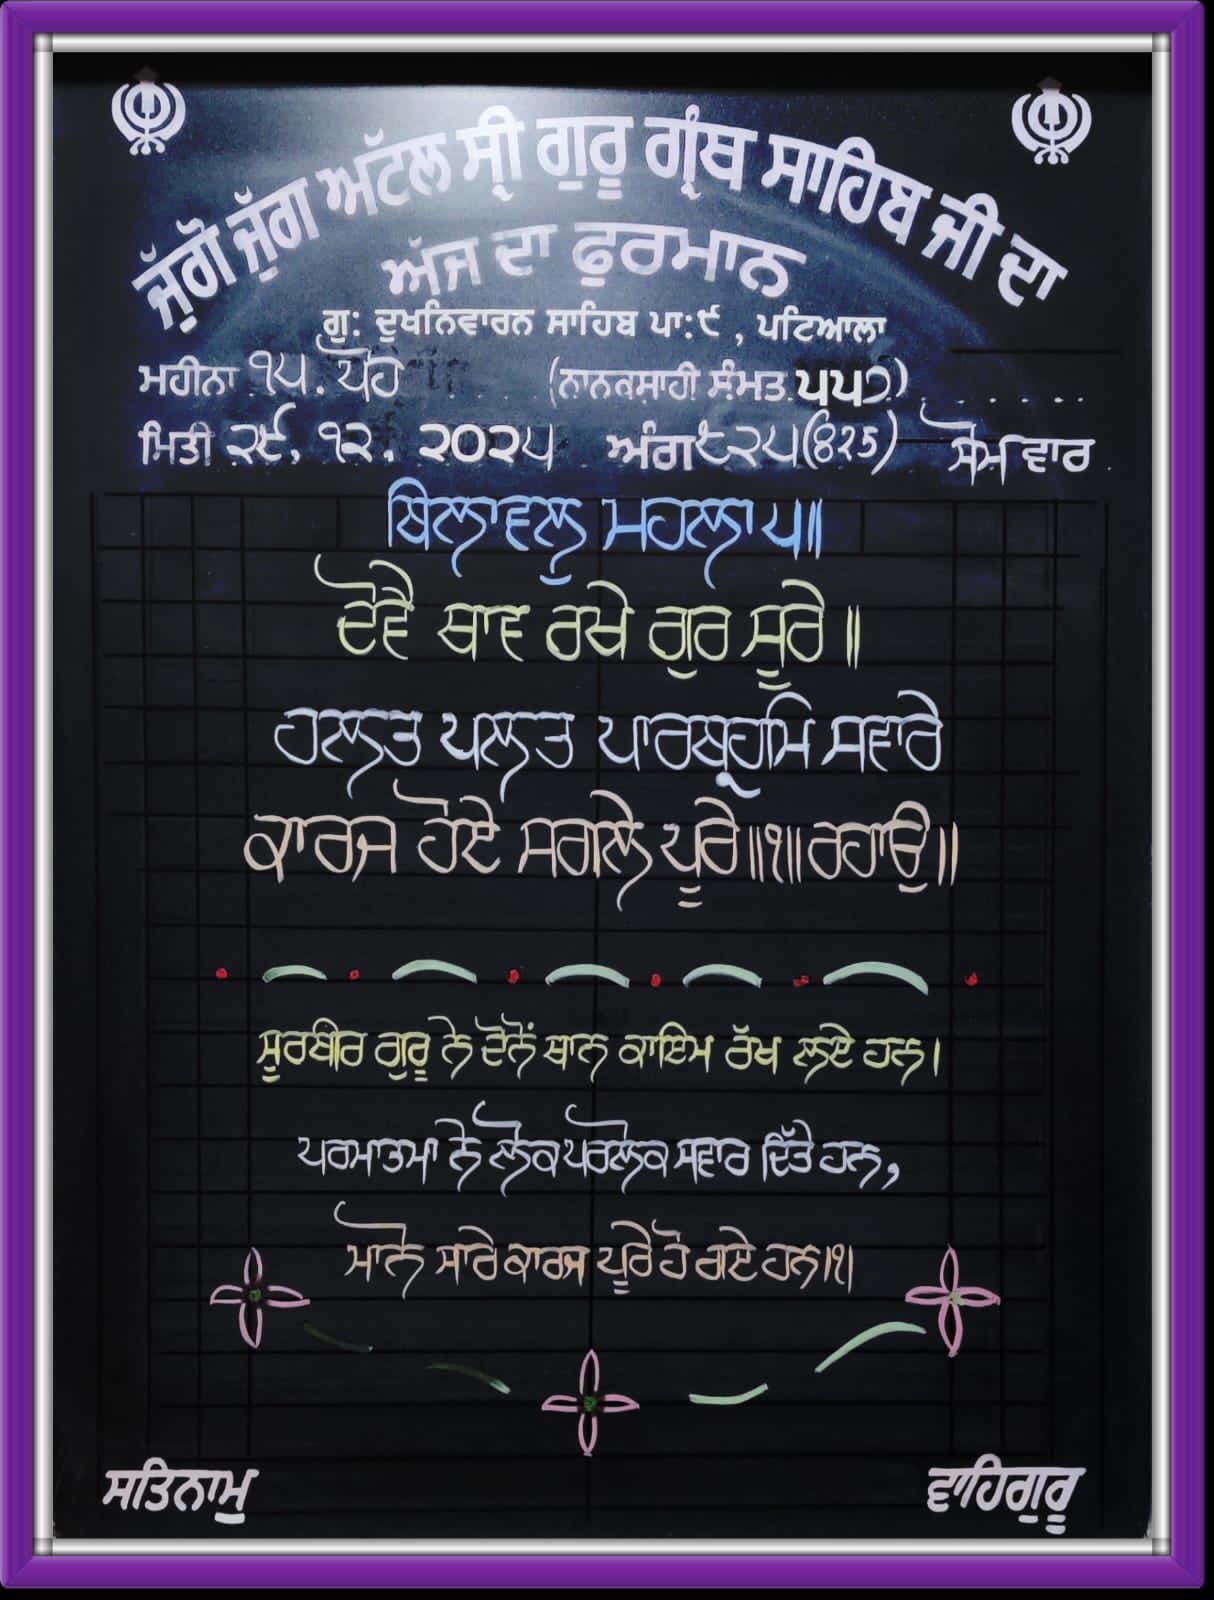 ਜੁੱਗੋ ਜੁੱਗ ਅਟੱਲ ਸ੍ਰੀ ਗੁਰੂ ਗ੍ਰੰਥ ਸਾਹਿਬ ਜੀ ਦਾ
ਅੱਜ ਦਾ ਫੁਰਮਾਨ
ਗੁ: ਦੁਖਨਿਵਾਰਨ ਸਾਹਿਬ ਪਾ:੯ , ਪਟਿਆਲਾ
ਮਹੀਨਾ ੧੫. ਪੋਹ (ਨਾਨਕਸਾਹੀ ਸੰਮਤ ੫੫੭)
ਮਿਤੀ ੨੯. ੧੨. ੨੦੨੫ ਅੰਗ ੮੨੫(825) ਸੋਮਵਾਰ
ਬਿਲਾਵਲੁ ਮਹਲਾ ੫॥
ਦੋਵੈ ਥਾਵ ਰਖੇ ਗੁਰ ਸੂਰੇ ॥
ਹਲਤ ਪਲਤ ਪਾਰਬ੍ਰਹਮਿ ਸਵਾਰੇ
ਕਾਰਜ ਹੋਏ ਸਗਲੇ ਪੂਰੇ ॥੧॥ ਰਹਾਉ ॥
ਸੂਰਬੀਰ ਗੁਰੂ ਨੇ ਦੋਨੋਂ ਥਾਨ ਕਾਇਮ ਰੱਖ ਲਏ ਹਨ।
ਪਰਮਾਤਮਾ ਨੇ ਲੋਕ ਪਰਲੋਕ ਸਵਾਰ ਦਿੱਤੇ ਹਨ,
ਮਾਨੋ ਸਾਰੇ ਕਾਰਜ ਪੂਰੇ ਹੋ ਗਏ ਹਨ।੧।
ਸਤਿਨਾਮੁ
ਵਾਹਿਗੁਰੂ